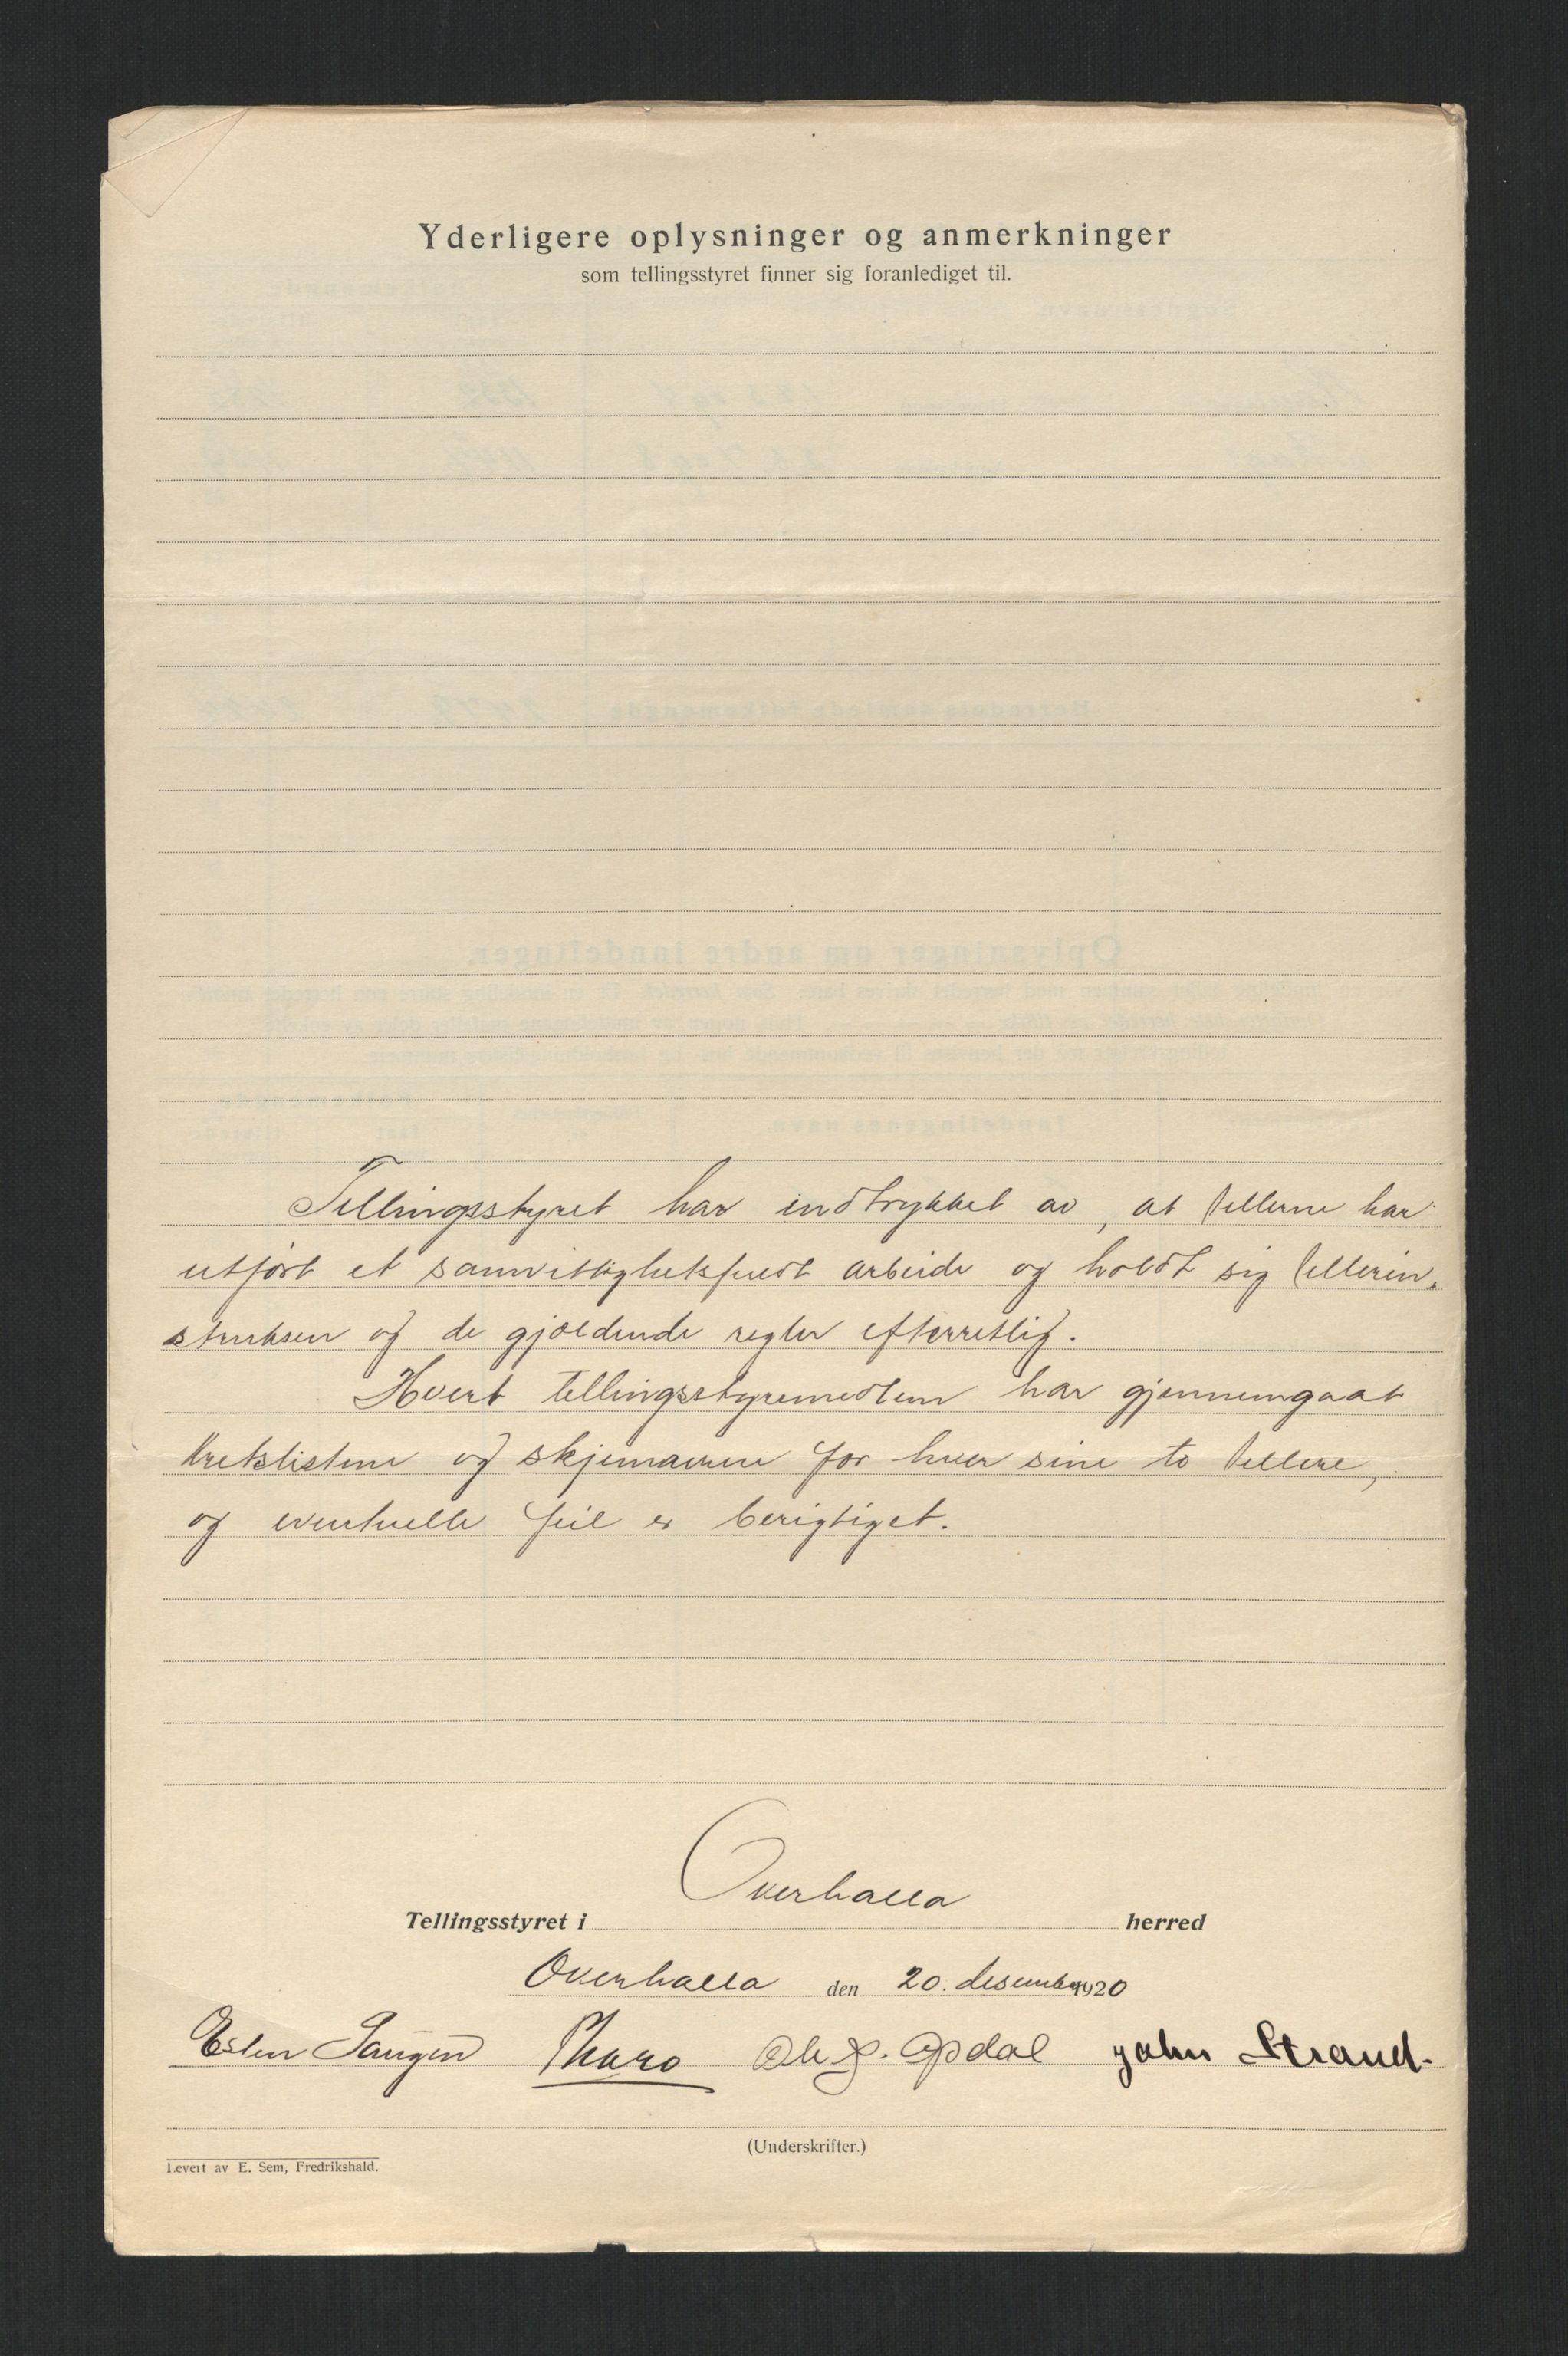 Yderligere oplysninger og anmerkninger
som tellingsstyret finner sig foranlediget til.
Tellingsstyret har indtrykket av, at tellerne har
utført et samvittighetsfuldt arbeide og holdt sig tellerin-
struksen og de gjældende regler efterretlig.
Hvert tellingsstyremedlem har gjennemgaat
kretslistene og skjemaerne for hver sine to tellere,
og eventuelle feil er berigtiget.
Overhalla
Tellingsstyret i herred
Overhalla den 20. desember 1920
Esten Saugen Ole J. Opdal John Strand.
(Underskrifter.)
Levert av E. Sem, Fredrikshald.